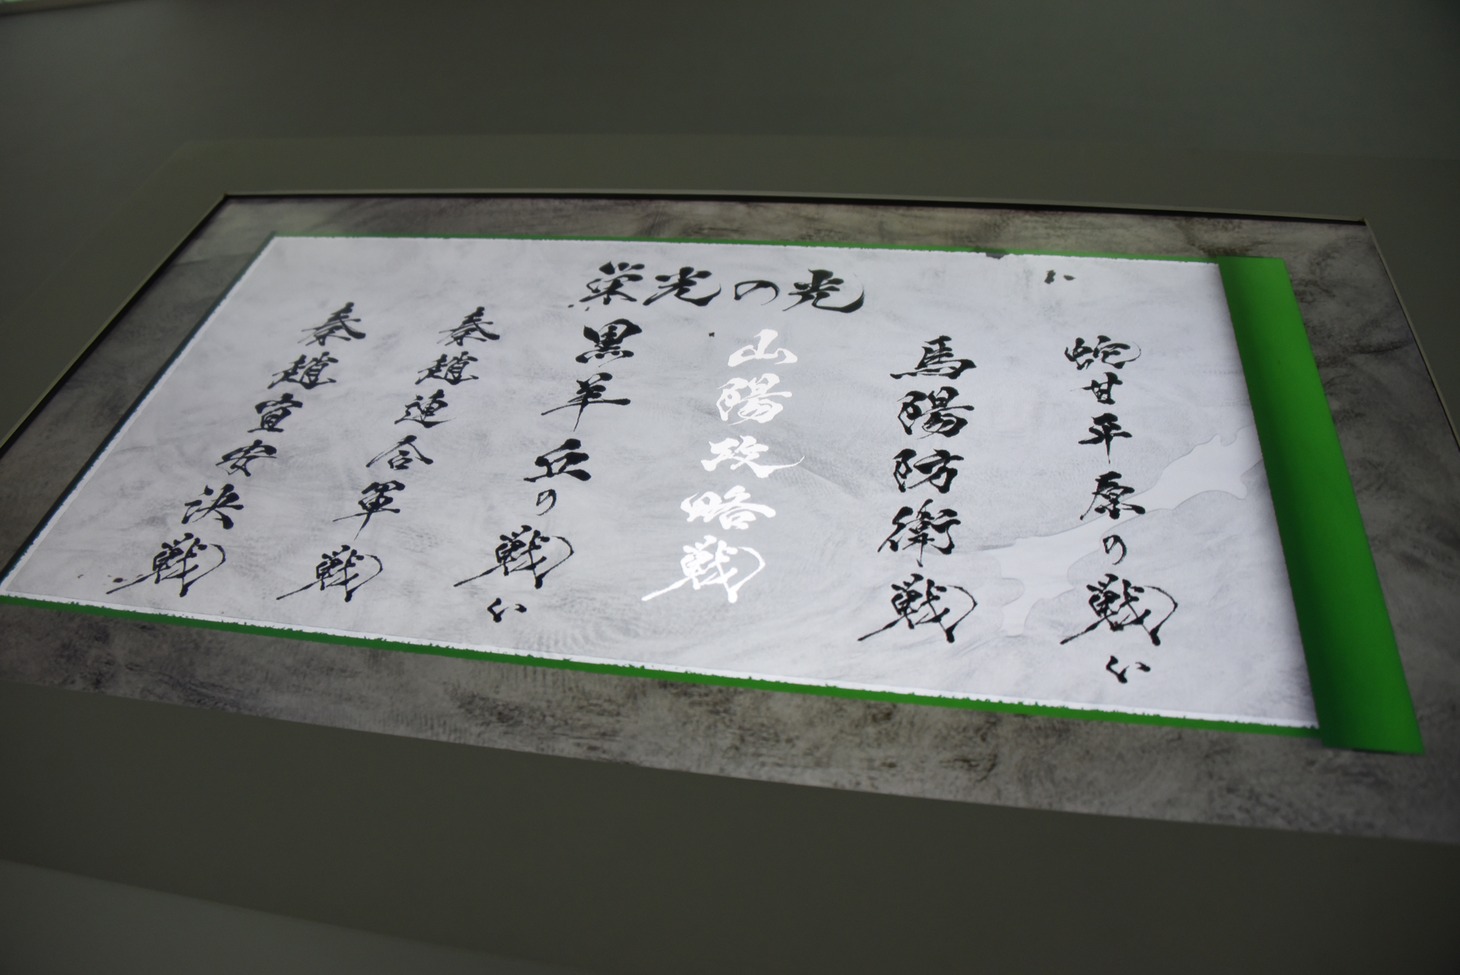 栄光の光
い
蛇甘平原の戦い
馬陽防衛戦
山陽攻略戦
黒羊丘の戦い
秦趙連合軍戦
秦趙宜安決戦